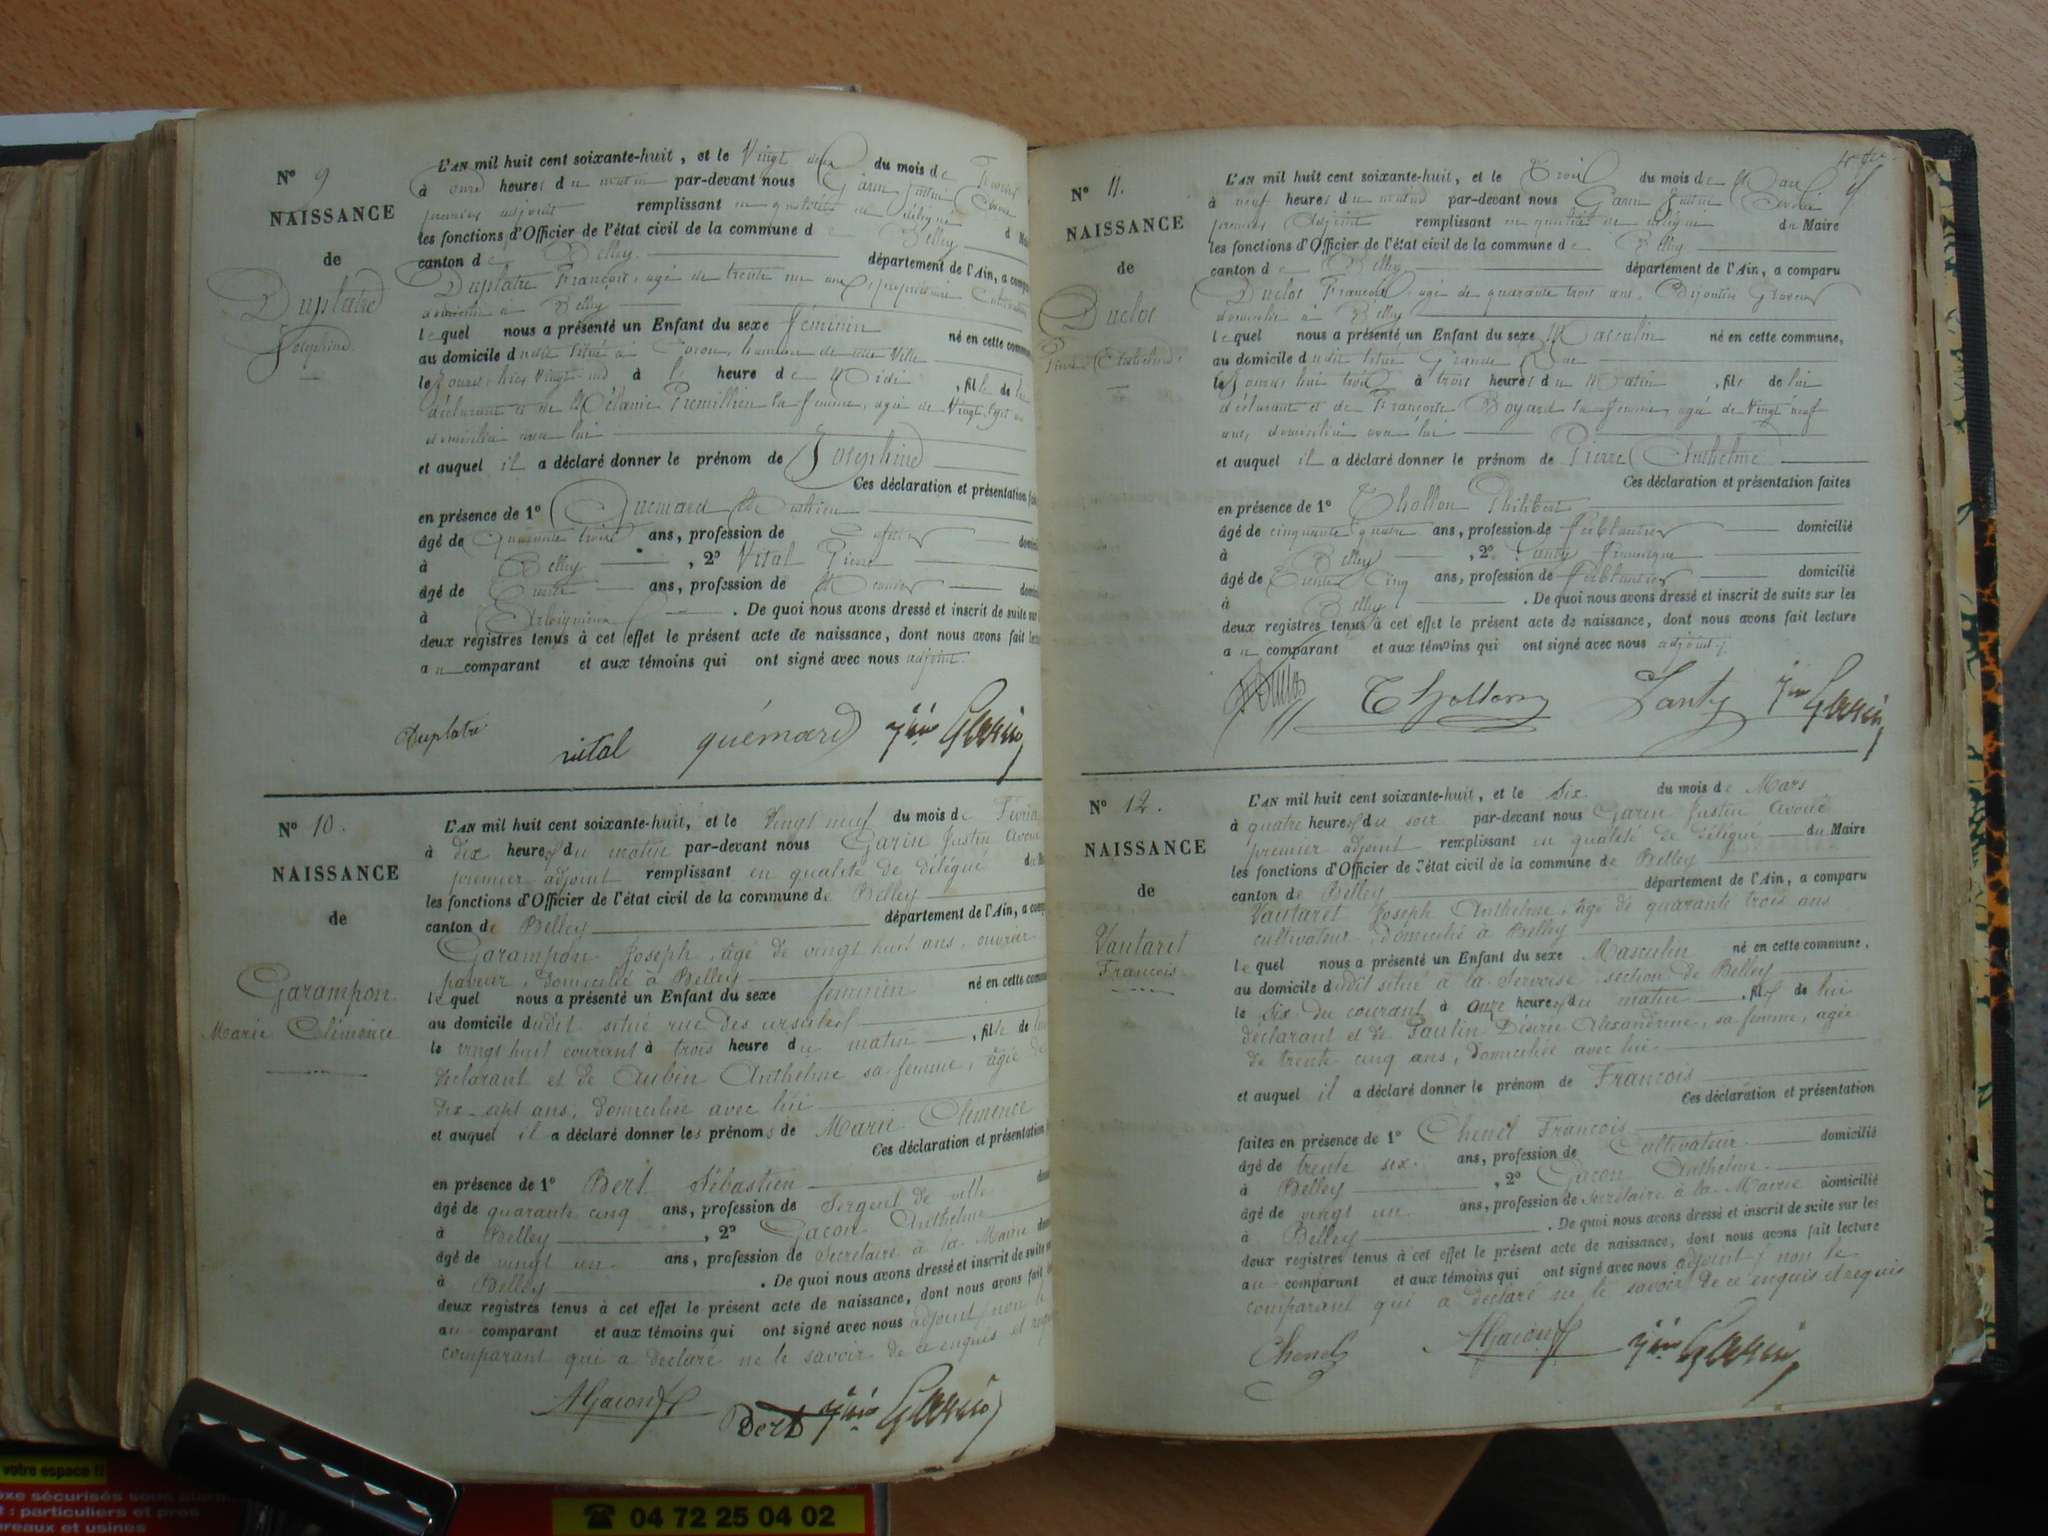 N° 9
NAISSANCE
de
Duplatre
Joséphine
L'AN mil huit cent soixante-huit, et le Vingt deux du mois de Février
à onze heures du matin par-devant nous Garin Justin Avoué
premier adjoint remplissant en qualité de délégué d
les fonctions d'Officier de l'état civil de la commune de Belley
canton de Belley département de l'Ain, a compa
Duplatre François, agé de trente un ans, propriétaire Cultivateur
domicilié à Belley
lequel nous a présenté un Enfant du sexe féminin né en cette commune
au domicile dudit situé à Coron, hameau de cette Ville
le jour hier vingt un à heure de Midi, fille de lui
déclarant et de Mélanie Premillieu sa femme, agée de Vingt sept ans
domiciliée avec lui
et auquel il a déclaré donner le prénom de Joséphine
Ces déclaration et présentation fai
en présence de 1° Quemard Mathieu
âgé de Quarante trois ans, profession de domici
à Belley, 2° Vital Pierre
âgé de Trente ans, profession de Meunier domici
à Arboignieu. De quoi nous avons dressé et inscrit de suite sur
deux registres tenus à cet effet le présent acte de naissance, dont nous avons fait lectu
au comparant et aux témoins qui ont signé avec nous adjoint.
Duplatre vital quémard Jtin Garin
N° 10.
NAISSANCE
de
Garampon
Marie Clémence
L'AN mil huit cent soixante-huit, et le vingt neuf du mois de Février
à dix heures du matin par-devant nous Garin Justin Avoué
premier adjoint remplissant en qualité de délégué du
les fonctions d'Officier de l'état civil de la commune de Belley
canton de Belley département de l'Ain, a comp
Garampon Joseph, âgé de vingt huit ans, ouvrier
paveur, domicilié à Belley
lequel nous a présenté un Enfant du sexe féminin né en cette commu
au domicile dudit situé rue des ursules
le vingt huit courant à trois heure du matin, fille de lui
déclarant et de Aubin Anthelme sa femme, âgée de
dix-sept ans, domiciliée avec lui
et auquel il a déclaré donner les prénoms de Marie Clémence
Ces déclaration et présentation
en présence de 1° Bert Sébastien
âgé de quarante cinq ans, profession de Sergent de ville
à Belley, 2° Gacon Anthelme
âgé de vingt un ans, profession de Secrétaire à la Mairie
à Belley. De quoi nous avons dressé et inscrit de suite
deux registres tenus à cet effet le présent acte de naissance, dont nous avons fait
au comparant et aux témoins qui ont signé avec nous adjoint, non le
comparant qui a déclaré ne le savoir de ce enquis et requis
AGacon Bert Jtin Garin
N° 11.
NAISSANCE
de
Duclos
Pierre Anthelme
L'AN mil huit cent soixante-huit, et le Trois du mois de Mars
à neuf heures du matin par-devant nous Garin Justin Avoué
premier Adjoint remplissant en qualité de délégué du Maire
les fonctions d'Officier de l'état civil de la commune de Belley
canton de Belley département de l'Ain, a comparu
Duclos François, agé de quarante trois ans, Bijoutier Graveur
domicilié à Belley
lequel nous a présenté un Enfant du sexe Masculin né en cette commune,
au domicile dudit situé Grande Rue
le jourd'hui trois à trois heures du Matin, fils de lui
déclarant et de Françoise Boyard sa femme, agée de vingt neuf
ans, domiciliée avec lui
et auquel il a déclaré donner le prénom de Pierre Anthelme
Ces déclaration et présentation faites
en présence de 1° Thollon Philibert
âgé de cinquante quatre ans, profession de ferblantier domicilié
à Belley, 2° Lanty
âgé de Trente Cinq ans, profession de ferblantier domicilié
à Belley. De quoi nous avons dressé et inscrit de suite sur les
deux registres tenus à cet effet le présent acte de naissance, dont nous avons fait lecture
au comparant et aux témoins qui ont signé avec nous adjoint.
Duclos Thollon Lanty Jtin Garin
N° 12.
NAISSANCE
de
Vautaret
François
L'AN mil huit cent soixante-huit, et le Six du mois de Mars
à quatre heures du soir par-devant nous Garin Justin Avoué
premier adjoint remplissant en qualité de délégué du Maire
les fonctions d'Officier de l'état civil de la commune de Belley
canton de Belley département de l'Ain, a comparu
Vautaret Joseph Anthelme, âgé de quarante trois ans
cultivateur, domicilié à Belley
lequel nous a présenté un Enfant du sexe Masculin né en cette commune,
au domicile dudit situé à la Servoise section de Belley
le Six du courant à onze heures du matin, fils de lui
déclarant et de Paulin Désirée Alexandrine, sa femme, agée
de trente cinq ans, domiciliée avec lui
et auquel il a déclaré donner le prénom de François
Ces déclaration et présentation
faites en présence de 1° Chenel François
âgé de trente six ans, profession de Cultivateur domicilié
à Belley, 2° Gacon Anthelme
âgé de vingt un ans, profession de Secrétaire à la Mairie domicilié
à Belley. De quoi nous avons dressé et inscrit de suite sur les
deux registres tenus à cet effet le présent acte de naissance, dont nous avons fait lecture
au comparant et aux témoins qui ont signé avec nous adjoint, non le
comparant qui a déclaré ne le savoir de ce enquis et requis
Chenel AGacon Jtin Garin
votre espace !!
xe sécurisés sous
t : particuliers et pros
reaux et usines
04 72 25 04 02